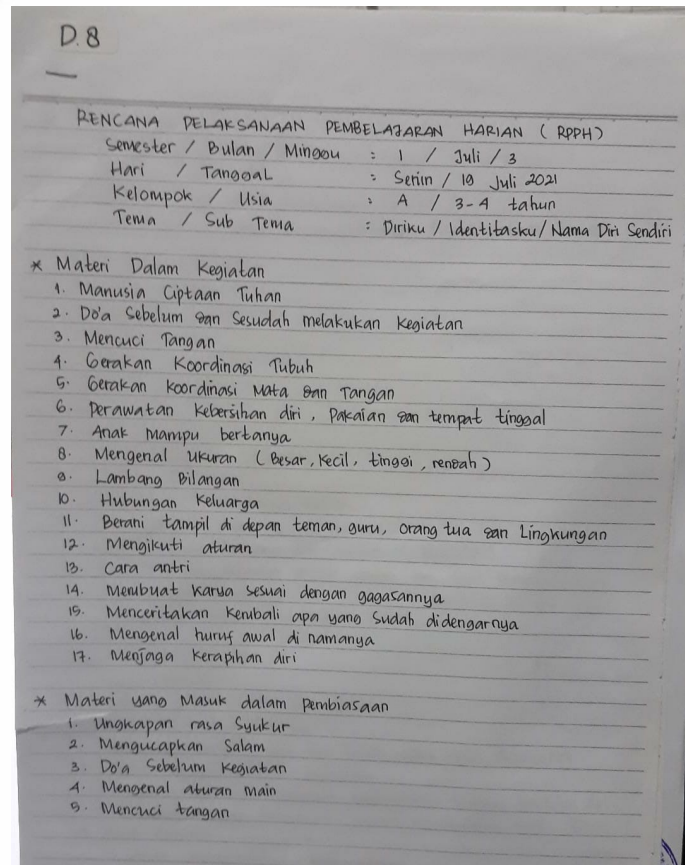 D.8
RENCANA PELAKSANAAN PEMBELAJARAN HARIAN (RPPH)
Semester / Bulan / Minggu : 1 / Juli / 3
Hari / Tanggal : Senin / 19 Juli 2021
Kelompok / Usia : A / 3-4 tahun
Tema / Sub Tema : Diriku / Identitasku / Nama Diri Sendiri
* Materi Dalam Kegiatan
1. Manusia Ciptaan Tuhan
2. Do'a Sebelum dan Sesudah melakukan Kegiatan
3. Mencuci Tangan
4. Gerakan Koordinasi Tubuh
5. Gerakan Koordinasi Mata dan Tangan
6. Perawatan Kebersihan diri, Pakaian dan tempat tinggal
7. Anak Mampu bertanya
8. Mengenal Ukuran (Besar, Kecil, tinggi, rendah)
9. Lambang Bilangan
10. Hubungan Keluarga
11. Berani tampil di depan teman, guru, orang tua dan Lingkungan
12. Mengikuti aturan
13. Cara antri
14. Membuat Karya Sesuai dengan gagasannya
15. Menceritakan Kembali apa yang Sudah didengarnya
16. Mengenal huruf awal di namanya
17. Menjaga Kerapihan diri
* Materi yang Masuk dalam Pembiasaan
1. Ungkapan rasa Syukur
2. Mengucapkan Salam
3. Do'a Sebelum Kegiatan
4. Mengenal aturan Main
5. Mencuci tangan